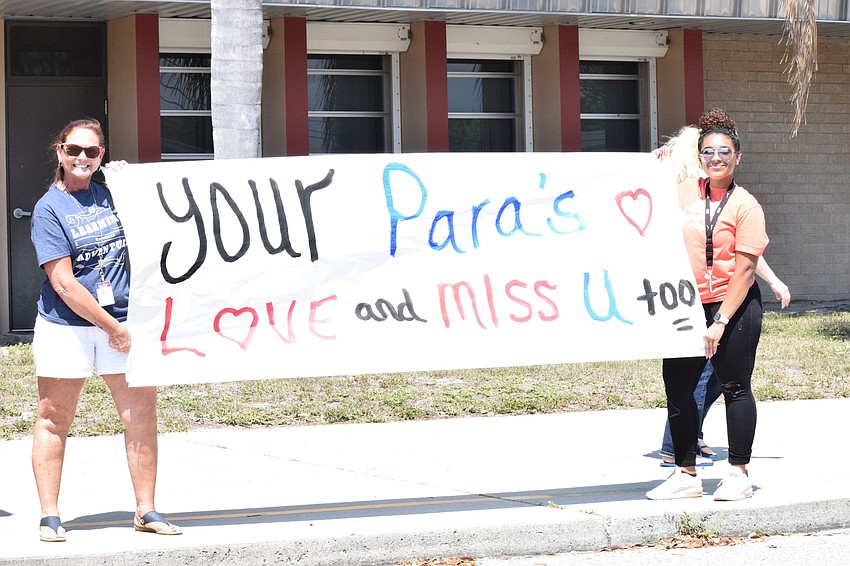 Your Para's
LOVE and miss U too
LEARNING
ADVENTURE